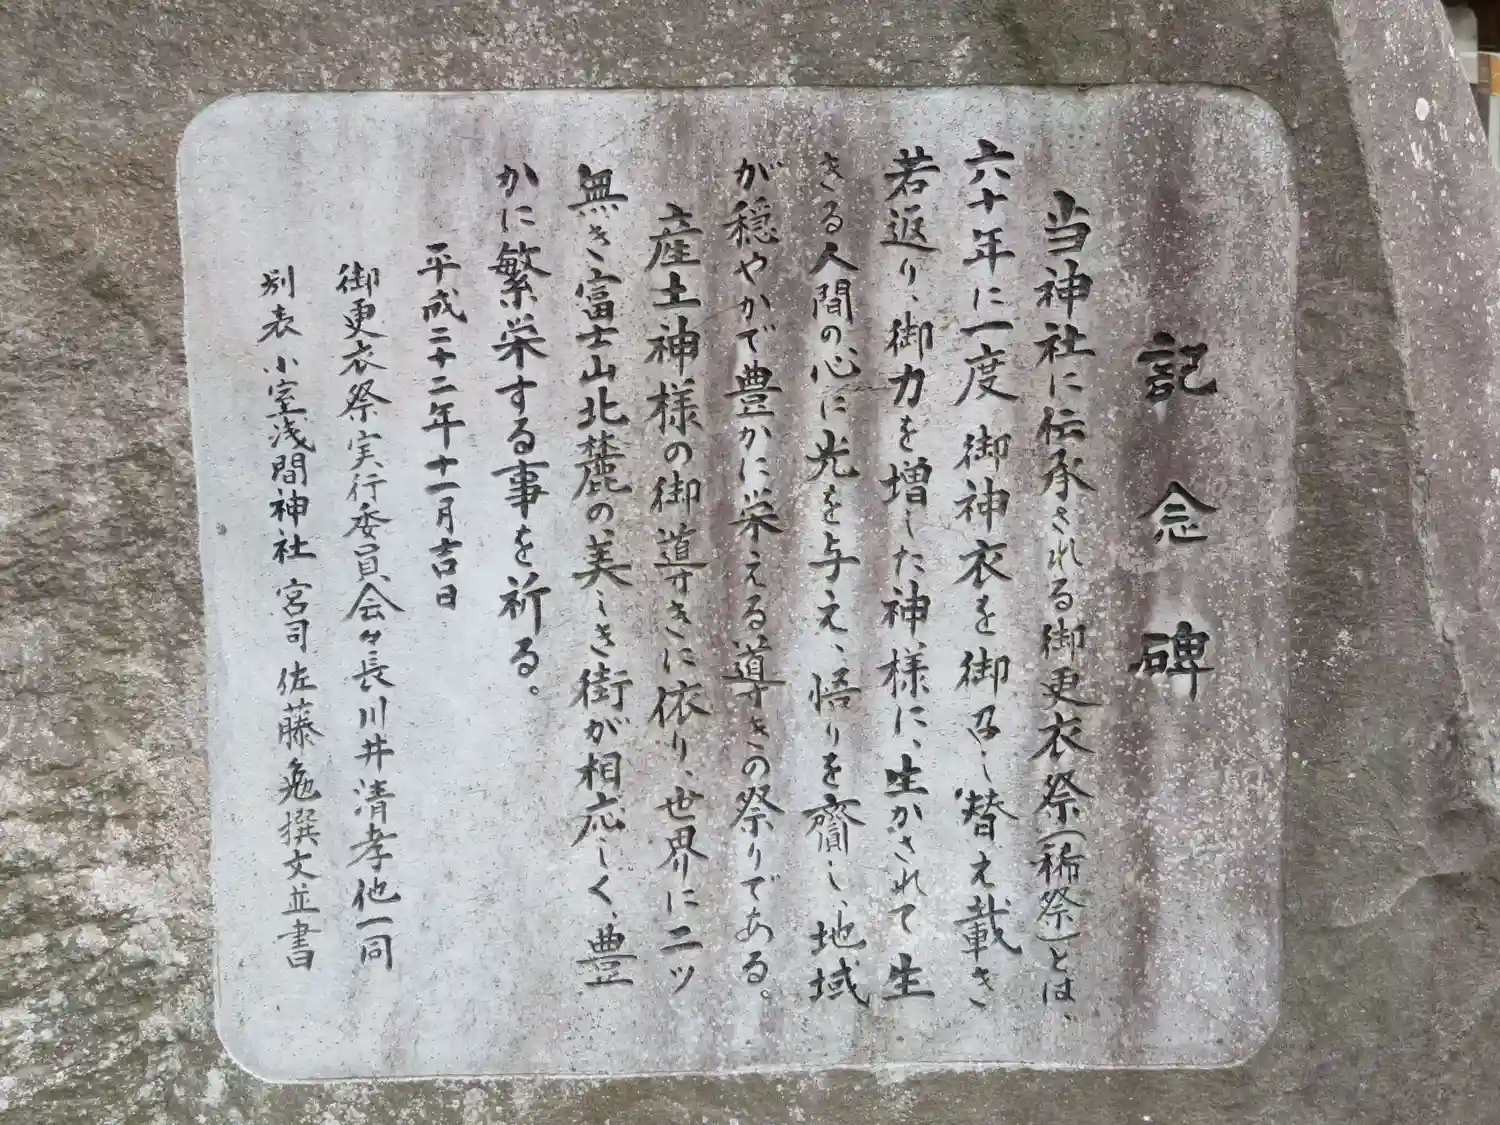 記念碑
当神社に伝承される御更衣祭(秘祭)とは、
六十年に一度御神衣を御召し替え載き
若返り、御力を増した神様に、生かされて生
きる人間の心に光を与え、悟りを齎し、地域
が穏やかで豊かに栄える導きの祭りである。
産土神様の御導きに依り、世界に二ツ
無き富士山北麓の、美しき街が相応しく、豊
かに繁栄する事を祈る。
平成二十二年十一月吉日
御更衣祭実行委員会々長川井清孝他一同
別表小室浅間神社 宮司 佐藤亀撰文並書